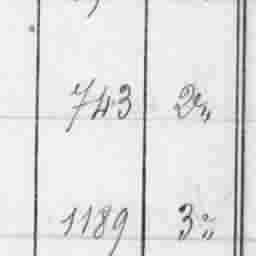 743 2 "
1189 3 "